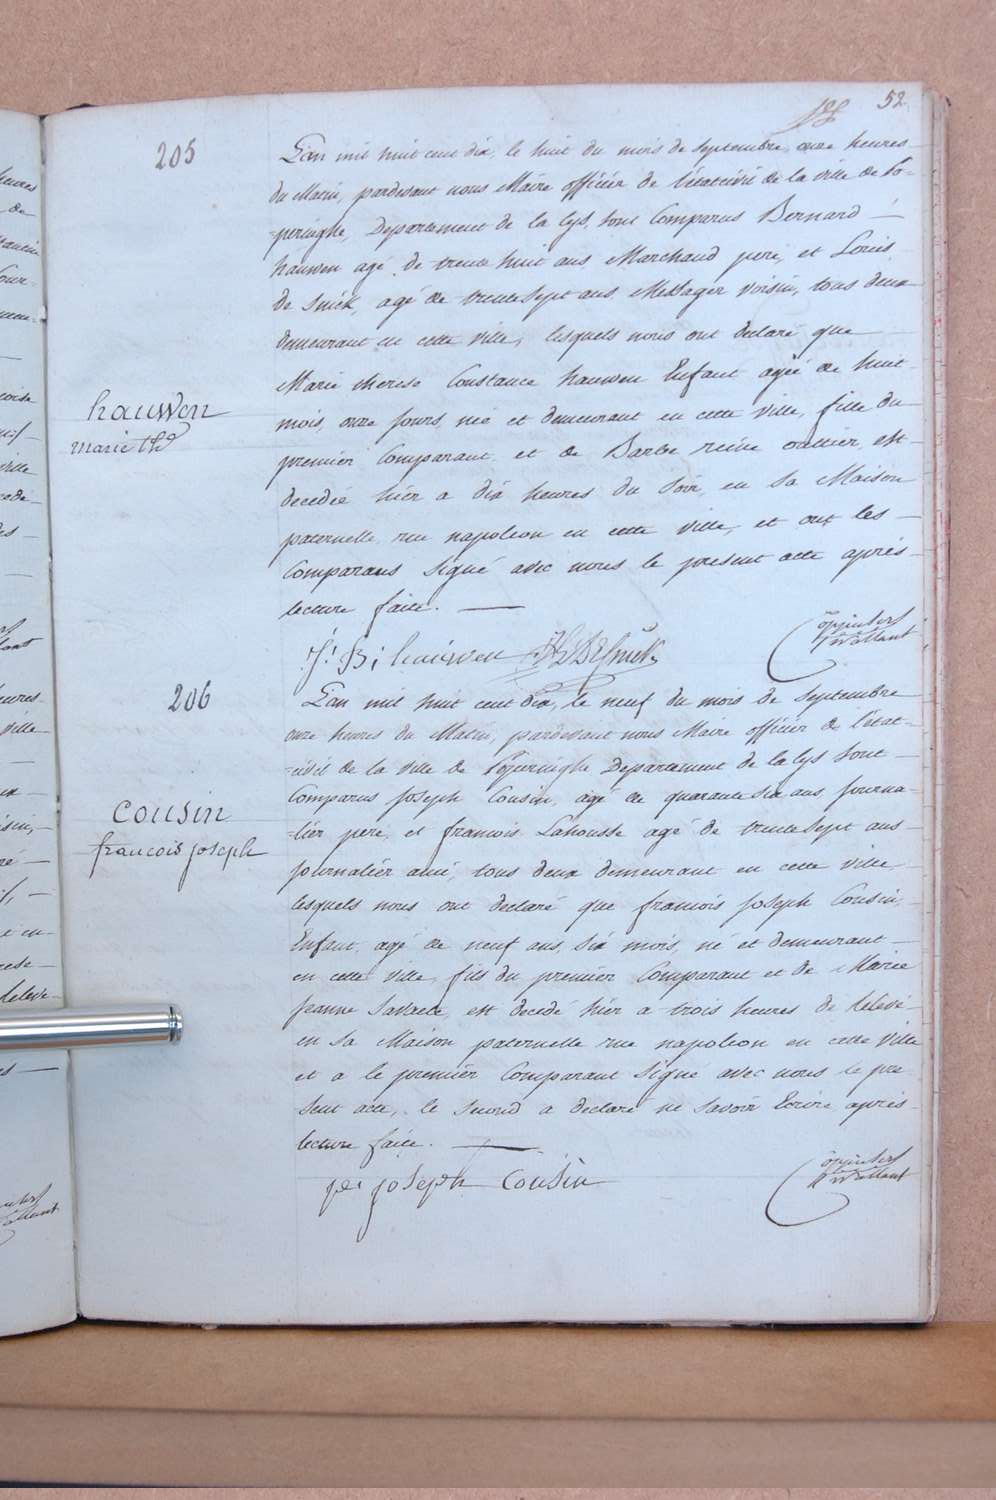 52
205
L'an mil huit cent dix, le huit du mois de septembre onze heures
du Matin, pardevant nous Maire officiér de l'état civil de la ville de Po-
-peringhe, Departement de la Lys, sont Comparus Bernard
hauwen agé de trente huit ans Marchand pere, et Louis
de Snick, agé de trente sept ans, Messager voisin, tous deux
demeurant en cette ville, lesquels nous ont declaré que
hauwen
Marie therese Constance hauwen Enfant agée de huit
marie th.e
mois, onze jours, née et demeurant en cette ville, fille du
premiér Comparant, et de Barbe reine est
decedée hiér a dix heures du soir, en sa Maison
paternelle, rue napoleon en cette ville, et ont les
Comparans signé avec nous le present acte aprés
lecture faite.
J: B: hauwen DeSnick
206
L'an mil huit cent dix, le neuf du mois de septembre
onze heures du Matin, pardevant nous Maire officiér de l'état
-civil de la ville de Poperinghe Departement de la lys sont
Comparus joseph Cousin, agé de quarante six ans, journa-
cousin
-liér pere, et francois Lahousse agé de trente sept ans
francois joseph
journaliér ami, tous deux demeurant en cette ville
lesquels nous ont declaré que francois joseph Cousin,
Enfant, agé de neuf ans, six mois, né et demeurant
en cette ville, fils du premiér Comparant et de Marie
jeanne est decedé hiér a trois heures de relevé
en sa Maison paternelle rue napoleon en cette ville
et a le premiér Comparant signé avec nous le pre-
-sent acte, le second a declaré ne savoir Ecrire aprés
lecture faite.
joseph cousin